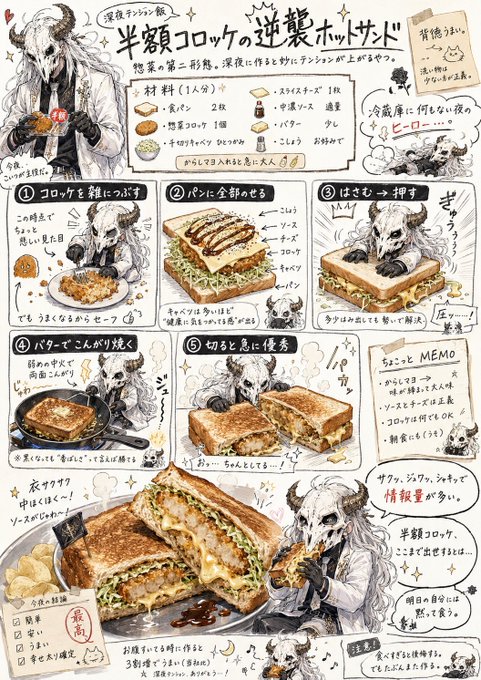 深夜テンション飯
半額コロッケの逆襲ホットサンド
惣菜の第二形態。深夜に作ると妙にテンションが上がるやつ。
背徳うまい。
洗い物は
少ない方が正義。
半額
今夜、
こいつが主役だ。
材料(1人分)
食パン 2枚
惣菜コロッケ 1個
千切りキャベツ ひとつかみ
スライスチーズ 1枚
中濃ソース 適量
バター 少し
こしょう お好みで
からしマヨ入れると急に大人
冷蔵庫に何もない夜の
ヒーロー……。
① コロッケを雑につぶす
この時点で
ちょっと
悲しい見た目
でも うまくなるから セーフ
② パンに全部のせる
こしょう
ソース
チーズ
コロッケ
キャベツ
パン
キャベツは多いほど
"健康に気をつかってる感"が出る
③ はさむ → 押す
ぎゅうぅぅぅ
多少はみ出しても 勢いで解決
圧ッ……!
④ バターでこんがり焼く
弱めの中火で
両面こんがり
じゅわー
ジューー
※黒くなっても"香ばしさ"って言えば勝てる
⑤ 切ると急に優秀
パカッ
おっ…ちゃんとしてる…!
ちょこっと MEMO
・からしマヨ →
味が締まって大人味
・ソースとチーズは正義
・コロッケは何でもOK
・朝食にも(うそ)
衣サクサク
中ほくほく〜!
ソースがじゅわ〜!
サクッ、ジュワッ、シャキッで
情報量が多い。
半額コロッケ、
ここまで出世するとは…
明日の自分には
黙って食う。
今夜の結論
簡単
安い
うまい
幸せ太り確定
最高、
お腹すいてる時に作ると
3割増でうまい(当社比)
☆ 深夜テンション、ありがとう…!
注意!
食べすぎると後悔する。
でもたぶんまた作る。